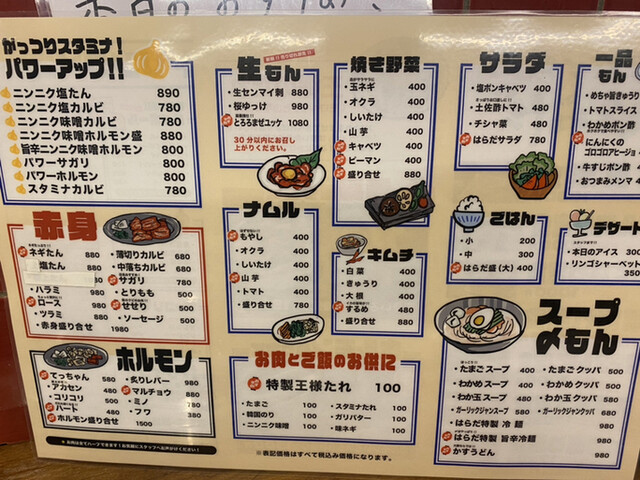 がっつりスタミナ！
パワーアップ!!
ニンニク塩たん 890
ニンニク塩カルビ 780
ニンニク味噌カルビ 780
ニンニク味噌ホルモン盛 880
旨辛ニンニク味噌ホルモン 800
パワーサガリ 800
パワーホルモン 800
スタミナカルビ 780
生もん
・生センマイ刺 880
・桜ゆっけ 980
とろろまぜユッケ 1080
30分以内にお召し
上がりください。
焼き野菜
・玉ネギ 400
・オクラ 400
・しいたけ 400
・山芋 400
・キャベツ 400
・ピーマン 400
・盛り合せ 880
サラダ
・塩ポンキャベツ 400
・土佐酢トマト 480
・チシャ菜 480
はらだサラダ 780
一品もん
・めちゃ旨きゅうり
・トマトスライス
・わかめポン酢
・にんにくの
ゴロゴロアヒージョ
・牛すじポン酢
・おつまみメンマ
赤身
ネギたん 880
塩たん 880
・ハラミ 980
ロース 980
・ツラミ 880
・赤身盛り合せ 1980
・薄切りカルビ 680
・中落ちカルビ 680
サガリ 780
・とりもも 500
せせり 500
・ソーセージ 500
ナムル
もやし 400
・オクラ 400
・しいたけ 400
・山芋 400
・トマト 400
・盛り合せ 780
キムチ
・白菜 400
・きゅうり 400
・大根 400
するめ 480
・盛り合せ 880
ごはん
・小 200
・中 300
はらだ盛（大） 400
デザート
・本日のアイス 300
・リンゴシャーベット 350
ホルモン
てっちゃん 580
・アカセン 480
・コリコリ 500
ハード 480
ホルモン盛り合せ 1500
・炙りレバー 980
マルチョウ 880
・ミノ 780
・フワ 380
★お肉は全てハーフできます！お気軽にスタッフへお声がけください！
お肉とご飯のお供に
特製王様たれ 100
・たまご 100
・韓国のり 100
・ニンニク味噌 100
・スタミナたれ 100
・ガリバター 100
・味ネギ 100
※表記価格はすべて税込み価格になります。
スープ
〆もん
・たまごスープ 400
・わかめスープ 480
・わか玉スープ 480
・ガーリックジャンスープ 580
・たまごクッパ 580
・わかめクッパ 580
・わか玉クッパ 580
・ガーリックジャンクッパ 680
・はらだ特製 冷麺 980
・はらだ特製 旨辛冷麺 980
かすうどん 980